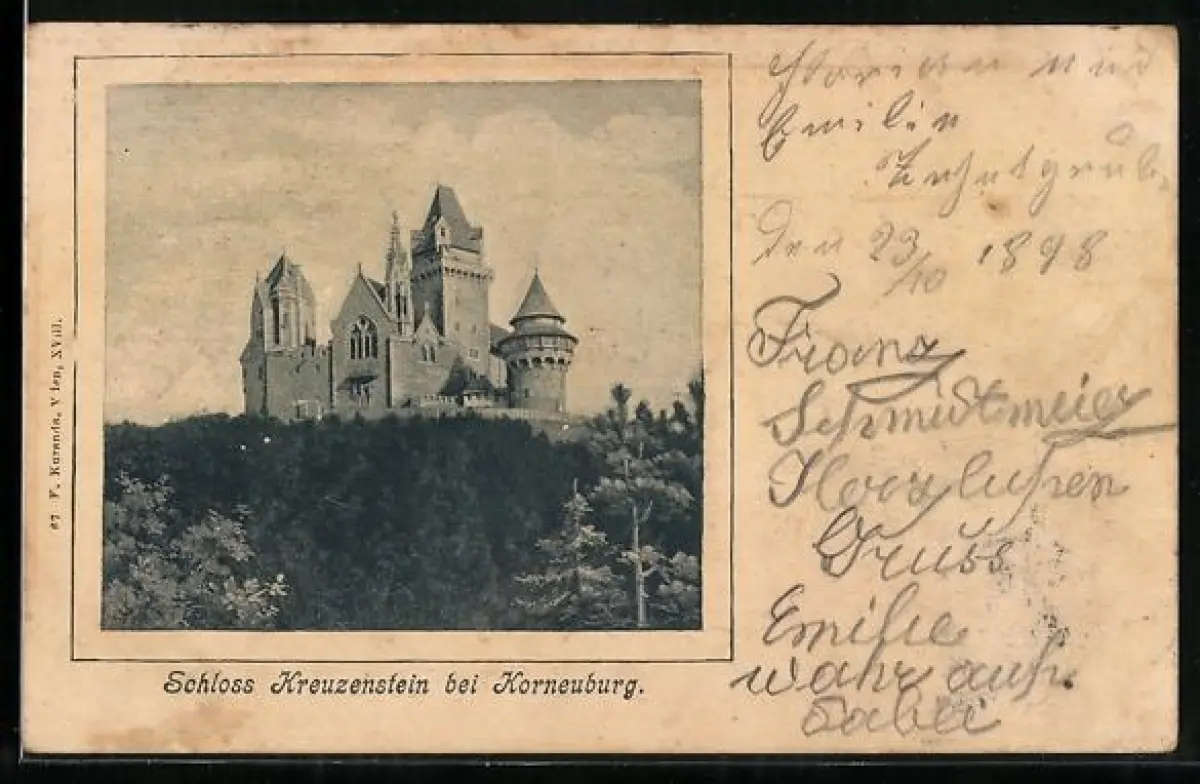 67 F. Kuranda, Wien, XVIII.
Schloss Kreuzenstein bei Korneuburg.
Florian und
Emilie
Den 23/10 1898
Franz
Schmidtmeier
Herzlichen
Gruss
Emilie
wahr auch
dabei